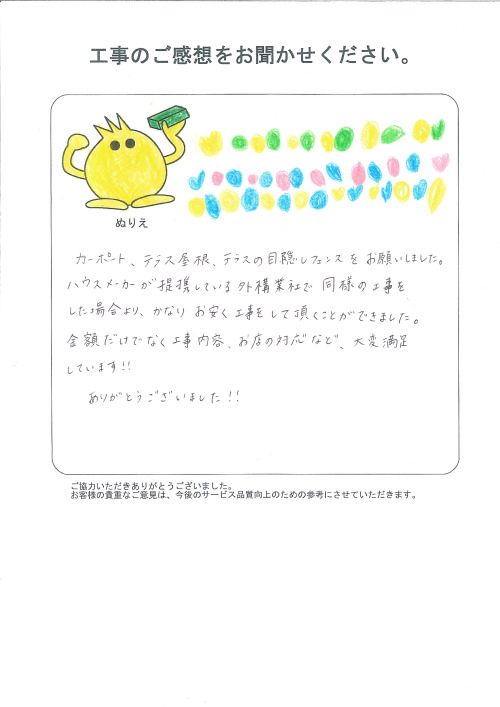 工事のご感想をお聞かせください。
ぬりえ
カーポート、テラス屋根、テラスの目隠しフェンスをお願いしました。
ハウスメーカーが提携している外構業社で同様の工事を
した場合より、かなりお安く工事をして頂くことができました。
金額だけでなく工事内容、お店の対応など、大変満足
しています!!
ありがとうございました!!
ご協力いただきありがとうございました。
お客様の貴重なご意見は、今後のサービス品質向上のための参考にさせていただきます。